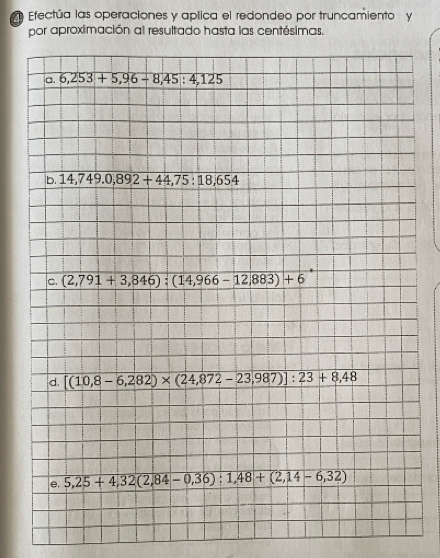 4 Efectúa las operaciones y aplica el redondeo por truncamiento y
por aproximación al resultado hasta las centésimas.
a. 6,253 + 5,96 – 8,45 : 4,125
b. 14,749.0,892 + 44,75 : 18,654
c. (2,791 + 3,846) : (14,966 – 12,883) + 6
d. [(10,8 – 6,282) × (24,872 – 23,987)] : 23 + 8,48
e. 5,25 + 4,32(2,84 – 0,36) : 1,48 + (2,14 – 6,32)